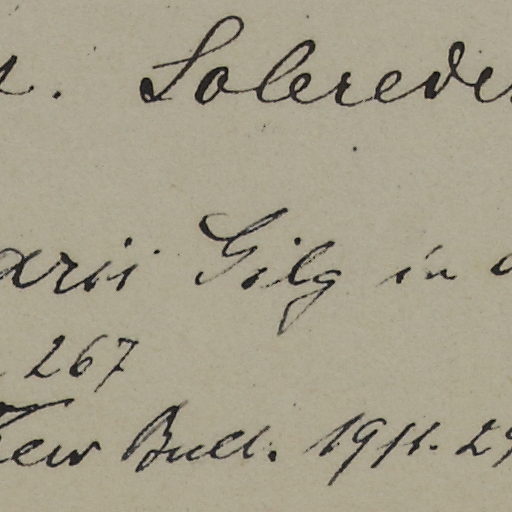 . Solereder
arii Gilg in
267
Kew Bull. 1911. 29